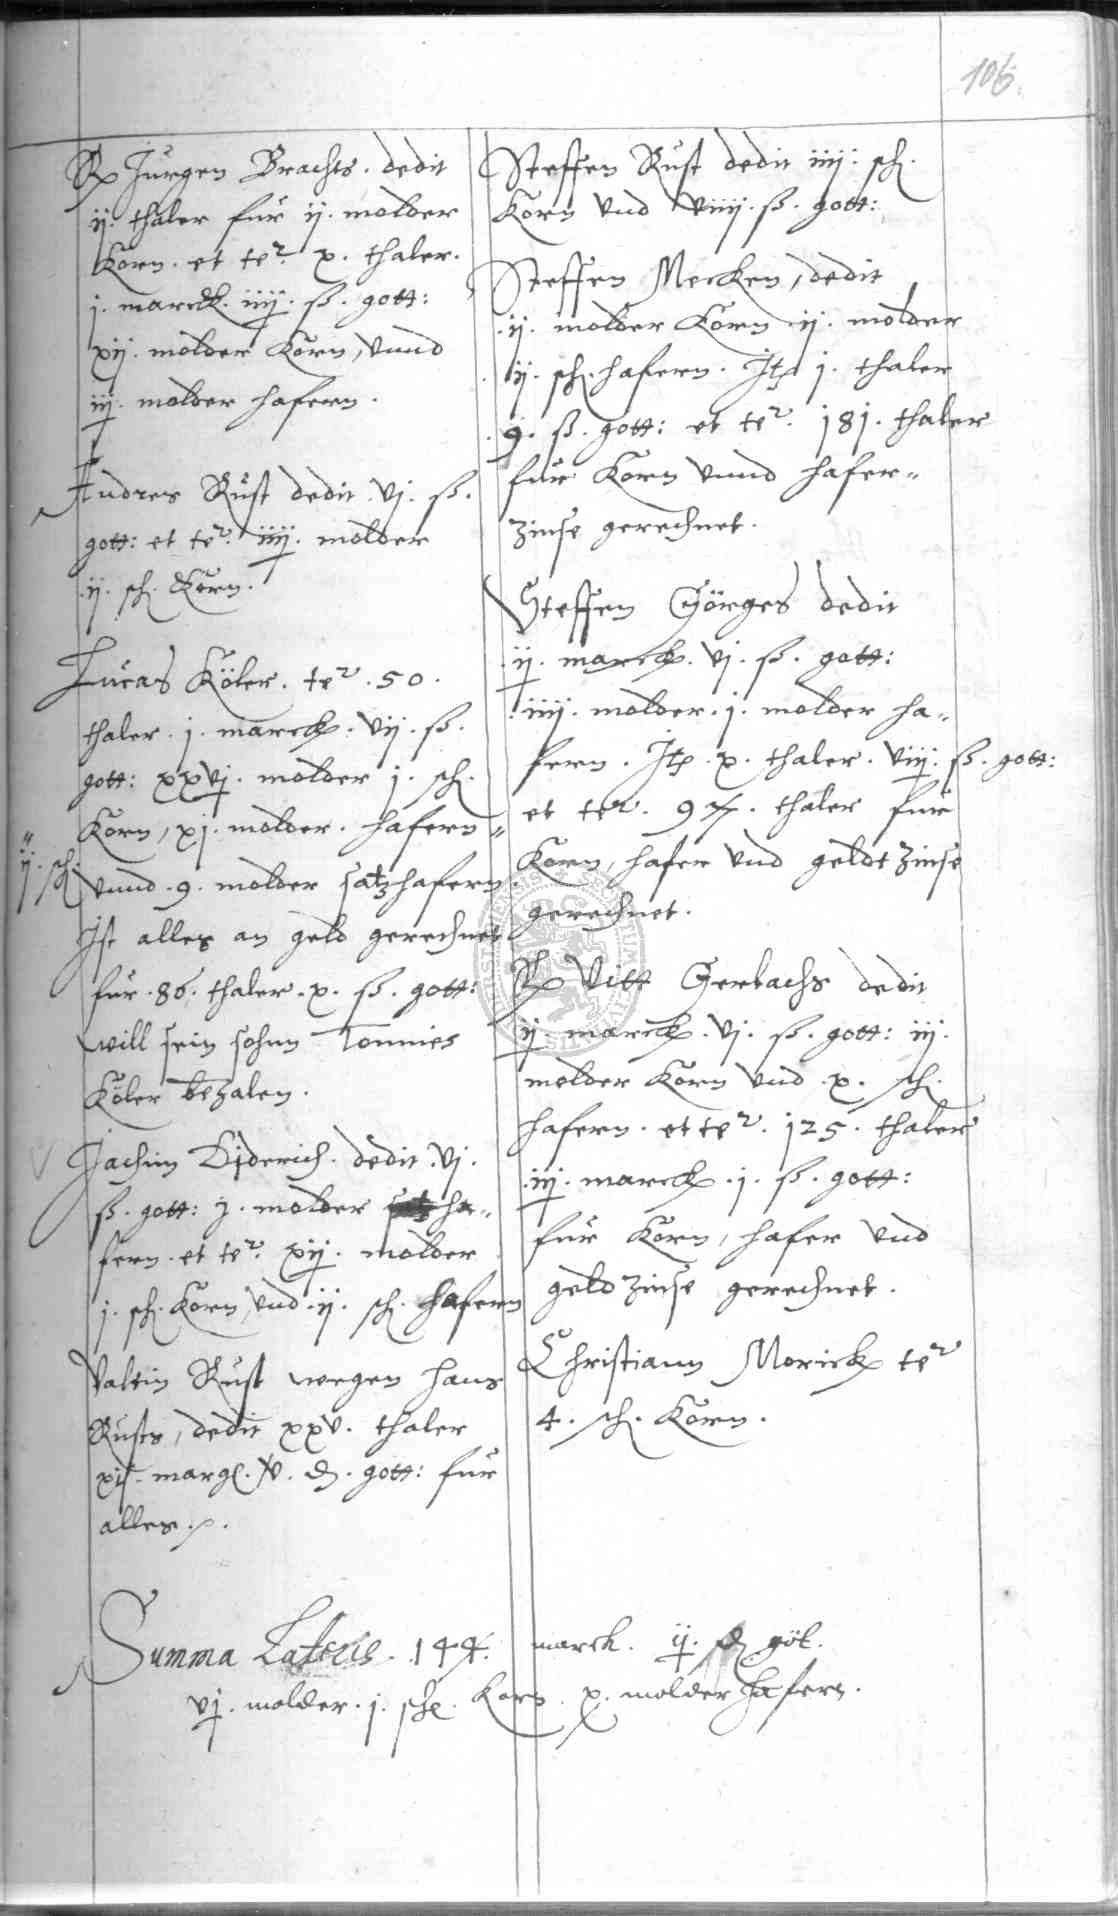 106.
Rp Jürgen Brachts. dedit
ij. thaler für ij. molder
Korn. et ter. x. thaler.
j. marck. iiij. ß. gott:
xij. molder Korn, vnnd
iij. molder hafern.
Andres Rust dedit. vj. ß.
gott: et ter. iiij. molder
.ij. sch. Korn.
Lucas Köler. ter. 50.
thaler. j. marck. vij. ß.
gott: xxvj. molder j. sch.
Korn, xj. molder. hafern
ij. sch.
vnnd. 9. molder satzhafern
Ist alles an geld gerechnet
für. 86. thaler. x. ß. gott:
will sein sohnn Tonnies
Köler bezalen.
Jachim Diderich. dedit. vj.
ß. gott: j. molder ha„
fern. et ter. xij. molder
j. sch. Korn, vnd. ij. sch. hafern
Valtin Rust wegen hans
Rusts, dedit xxv. thaler
marg. v. d. gott: für
alles.
Steffen Rust dedit iiij. sch.
Korn vnd viiij. ß. gott:
Steffen Mercken, dedit
.ij. molder Korn ij. molder
ij. sch. hafern. Itp j. thaler
.9. ß. gott: et ter. 181. thaler
für Korn vnnd hafer„
zinse gerechnet.
Steffen Görges dedit
.ij. marck. vj. ß. gott:
.iiij. molder. j. molder ha„
fern. Itp. x. thaler. viij. ß. gott:
et ter. 97. thaler für
Korn, hafer vnd geldt zinse
gerechnet.
Rp Vitt Gerlachs dedit
ij. marck. vj. ß. gott: iij.
molder Korn vnd. x. sch.
hafern. et ter. 125. thaler
.iij. marck. j. ß. gott:
für Korn, hafer vnd
geld zinse gerechnet.
Christiann Morick ter
4. sch. Korn.
Summa Lateris. 144. marck. ij. d gött.
vj. molder. j. sche. Korn. x. molder hafern.